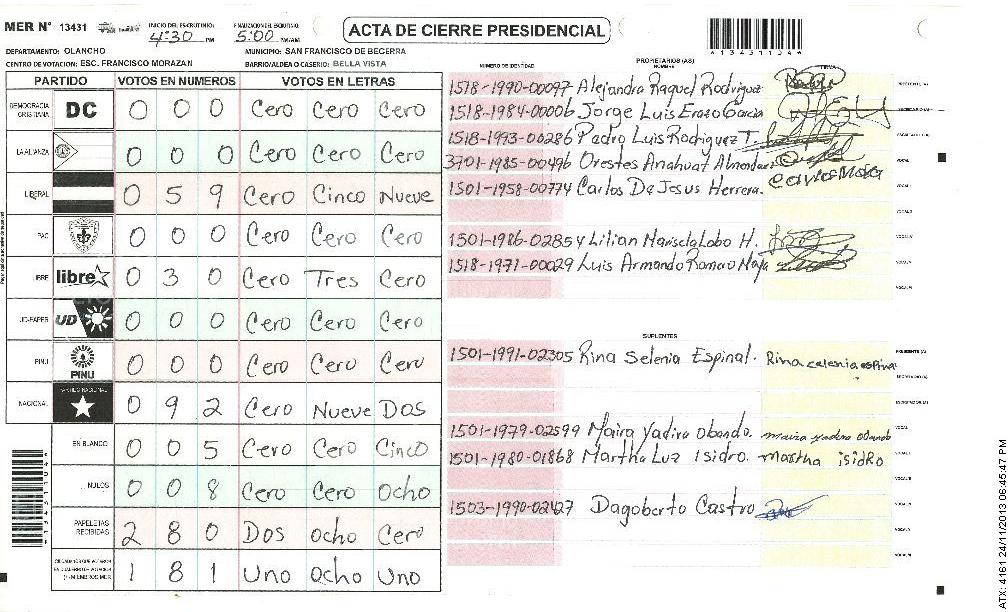 MER N° 13431
INICIO DEL ESCRUTINIO: 4:30 PM
FINALIZACION DEL ESCRUTINIO: 5:00 PM/AM
ACTA DE CIERRE PRESIDENCIAL
DEPARTAMENTO: OLANCHO
MUNICIPIO: SAN FRANCISCO DE BECERRA
CENTRO DE VOTACION: ESC. FRANCISCO MORAZAN
BARRIO/ALDEA O CASERIO: BELLA VISTA
PARTIDO VOTOS EN NUMEROS VOTOS EN LETRAS
DEMOCRACIA CRISTIANA DC 0 0 0 Cero Cero Cero
LA ALIANZA 0 0 0 Cero Cero Cero
LIBERAL 0 5 9 Cero Cinco Nueve
PAC 0 0 0 Cero Cero Cero
LIBRE libre 0 3 0 Cero Tres Cero
UD-FAPER UD 0 0 0 Cero Cero Cero
PINU PINU 0 0 0 Cero Cero Cero
NACIONAL PARTIDO NACIONAL 0 9 2 Cero Nueve Dos
EN BLANCO 0 0 5 Cero Cero Cinco
NULOS 0 0 8 Cero Cero Ocho
PAPELETAS RECIBIDAS 2 8 0 Dos ocho Cero
CIUDADANOS QUE VOTARON EN CUADERNO DE VOTACION (+) MIEMBROS MER 1 8 1 Uno ocho Uno
PROPIETARIOS (AS)
NUMERO DE IDENTIDAD NOMBRE FIRMA
1518-1990-00097 Alejandra Raquel Rodriguez PRESIDENTE (A)
1518-1984-00006 Jorge Luis Erazo Garcia SECRETARIO (A)
1518-1993-00286 Pedro Luis Rodriguez T. ESCRUTADOR (A)
3701-1985-00496 Orestes Anahuat VOCAL I
1501-1958-00774 Carlos De Jesus Herrera. VOCAL II
1501-1986-02854 Lilian Marisela Lobo H. VOCAL IV
1518-1971-00029 Luis Armando Romero VOCAL V
SUPLENTES
1501-1991-02305 Rina Selenia Espinal. Rina celenia espinal PRESIDENTE (A)
SECRETARIO (A)
ESCRUTADOR (A)
1501-1979-02599 Maira Yadira Obando. maiza yadira obando VOCAL I
1501-1980-01868 Martha Luz Isidro. martha isidro VOCAL II
1503-1990-02427 Dagoberto Castro
ATX: 4161 24/11/2013 06:45:47 PM